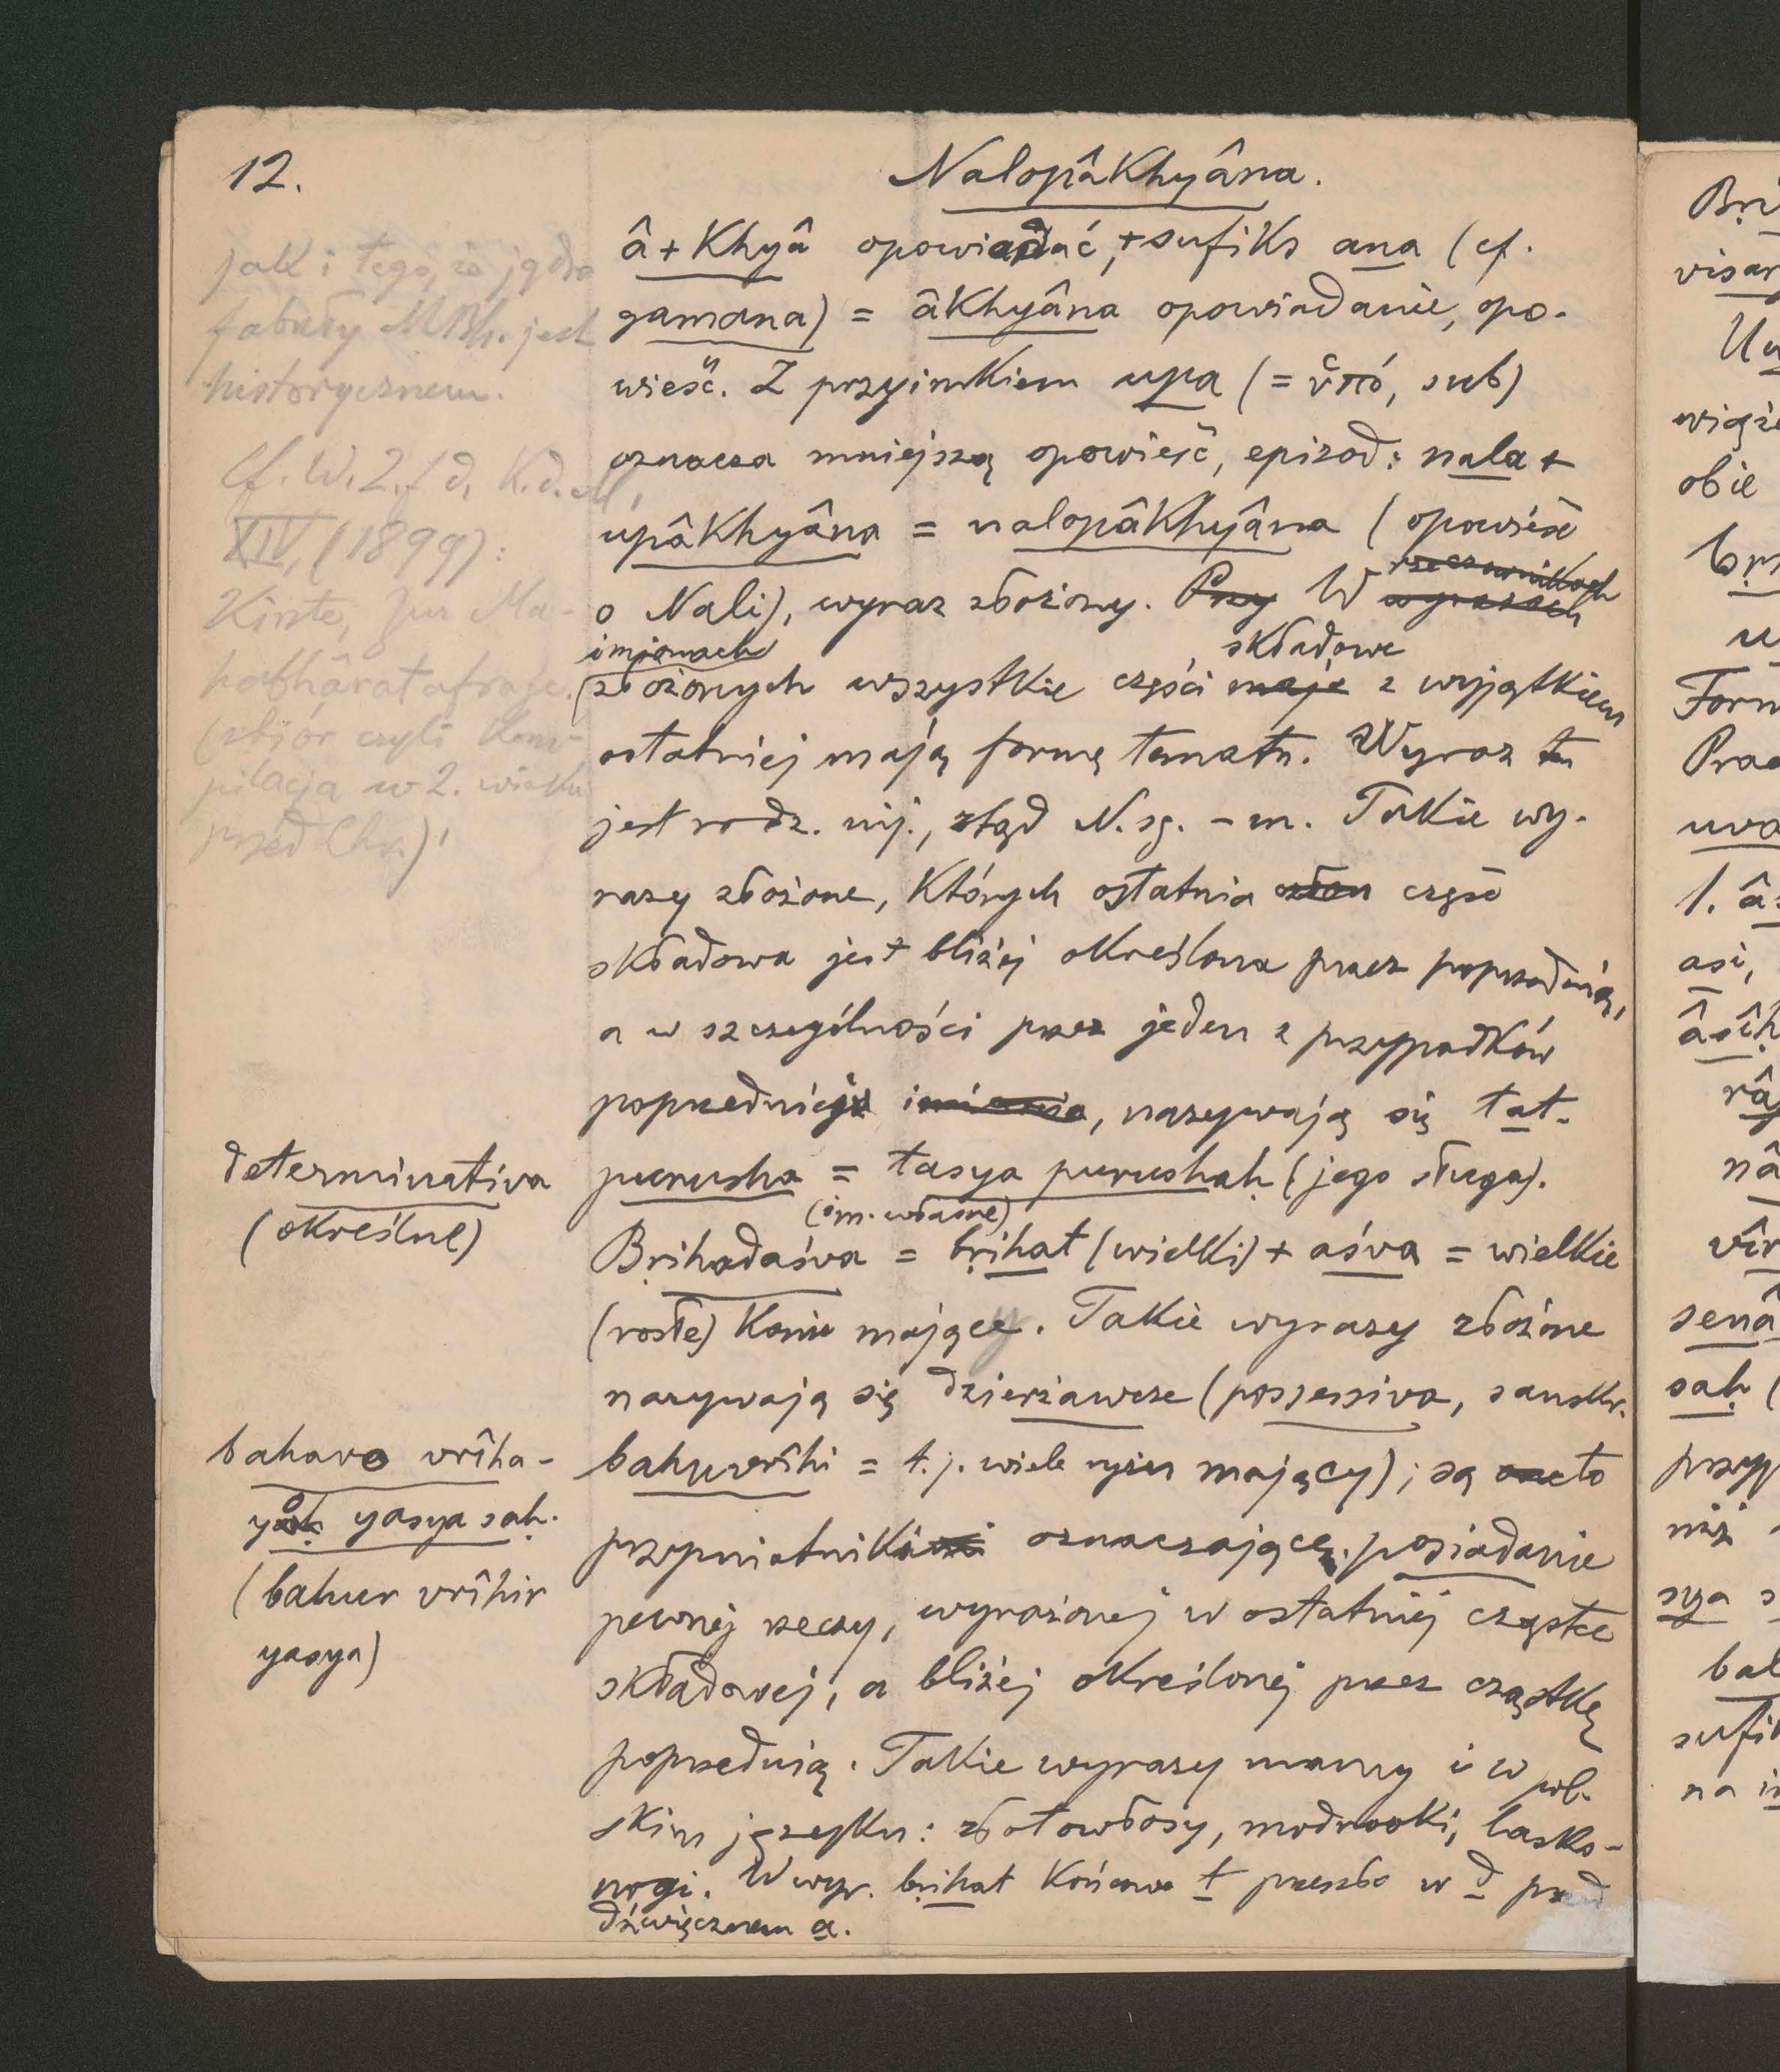 12.
Nalopâkhyâna.
â + khyâ opowiadać, + sufiks ana (cf.
gamana) = âkhyâna opowiadanie, opo-
wieść. Z przyimkiem upa (= ὑπό, sub)
oznacza mniejszą opowieść, epizod: nala +
upâkhyâna = nalopâkhyâna (opowieść
o Nali), wyraz złożony. Przy W wyrazach rzeczownikach
imionach
złożonych wszystkie części mają składowe z wyjątkiem
ostatniej mają formę tematu. Wyraz ten
jest rodz. nij., ztąd N. sg. -m. Takie wy-
razy złożone, których ostatnia człon część
składowa jest bliżej określona przez poprzednią,
a w szczególności przez jeden z przypadków
poprzedniej imienia, nazywają się tat-
purusha = tasya purushaḥ (jego sługa).
(im. własne)
Bṛihadaśva = bṛihat (wielki) + aśva = wielkie
(rosłe) konie mający. Takie wyrazy złożone
nazywają się dzierżawcze (possessiva, sanskr.
bahuvrîhi = t. j. wiele ryżu mający); są to
przymiotniki oznaczające posiadanie
pewnej rzeczy, wyrażonej w ostatniej cząstce
składowej, a bliżej określonej przez cząstkę
poprzednią. Takie wyrazy mamy i w pol-
skim języku: złotowłosy, modrooki, lasko-
nogi. W wyr. bṛihat końcowe t przeszło w d przed
dźwięcznem a.
jak i tego, że jądro
fabuły MBh. jest
historycznem.
Cf. W. Z. f. d. K. d. M.
XIV, (1899):
Kirste, Zur Ma-
habhâratafrage.
(zbiór czyli kom-
pilacja w 2. wieku
przed Chr.)
determinativa
(określne)
bahavo vrîha-
yo yasya saḥ.
(bahur vrîhir
yasya)
Bṛi
obie
1. â
asi,
râ
nâ
vîr
senâ
saḥ (
przyp
niż
sya s
sufi